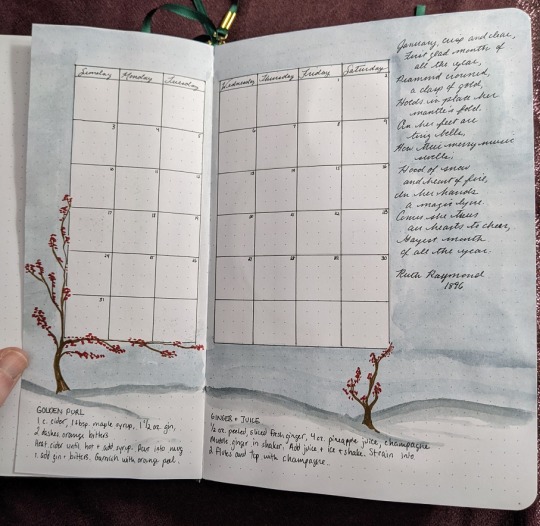 Sunday Monday Tuesday Wednesday Thursday Friday Saturday
1 2
3 4 5 6 7 8 9
10 11 12 13 14 15 16
17 18 19 20 21 22 23
24 25 26 27 28 29 30
31
January, crisp and clear,
First glad month of
all the year,
Diamond crowned,
a clasp of gold,
Holds in place her
mantle's fold.
On her feet are
tiny bells,
How their merry music
swells,
Hood of snow
and heart of fire,
In her hands
a magic lyre.
Comes she thus
our hearts to cheer,
Gayest month
of all the year.
Ruth Raymond
1896
GOLDEN PURL
1 c. cider, 1 tbsp. maple syrup, 1 1/2 oz. gin,
2 dashes orange bitters
Heat cider until hot + add syrup. Pour into mug
+ add gin + bitters. Garnish with orange peel.
GINGER + JUICE
1/2 oz. peeled, sliced fresh ginger, 4 oz. pineapple juice, champagne
Muddle ginger in shaker. Add juice + ice + shake. Strain into
2 flutes and top with champagne.